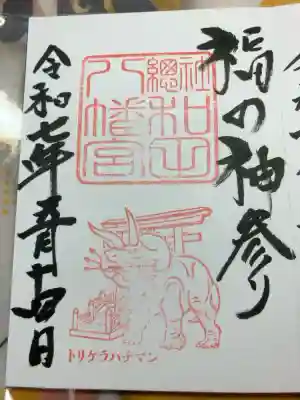 福の神参り
總社
和田
八幡宮
トリケラハチマン
令和七年五月十四日